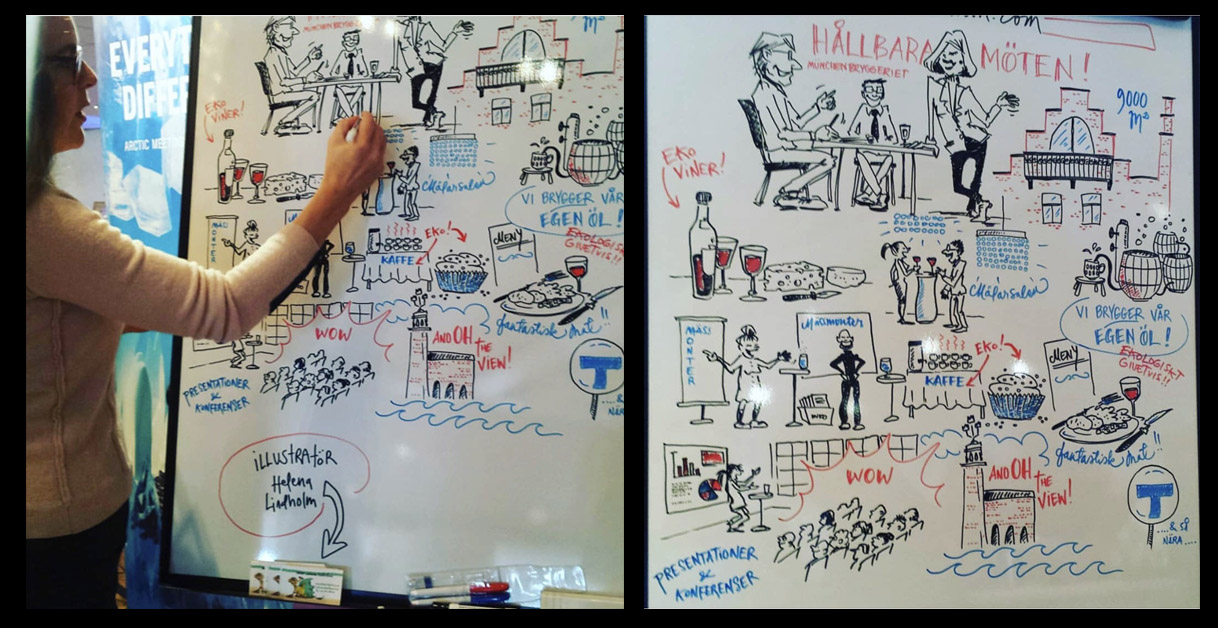 EVERYT
DIFFE
ARCTIC MEET
MÜNCHENBRYGGERIET
M²
EKO
VINER!
Mälarsalen
VI BRYGGER VÅR
EGEN ÖL!
EKOLOGISKT
GIVETVIS!!
MÄSS
MONTER
KAFFE
EKO!
MENY
fantastisk mat!!
WOW
AND OH
THE
VIEW!
T
NÄRA
PRESENTATIONER
&
KONFERENSER
ILLUSTRATÖR
Helena
Lindholm
.com
HÅLLBARA MÖTEN!
MÜNCHENBRYGGERIET
9000
M²
EKO
VINER!
Mälarsalen
VI BRYGGER VÅR
EGEN ÖL!
EKOLOGISKT
GIVETVIS!!
MÄSS
MONTER
Mässmonter
INFO
KAFFE
EKO!
MENY
fantastisk mat!!
WOW
AND OH
THE
VIEW!
T
....& SÅ
NÄRA....
PRESENTATIONER
&
KONFERENSER